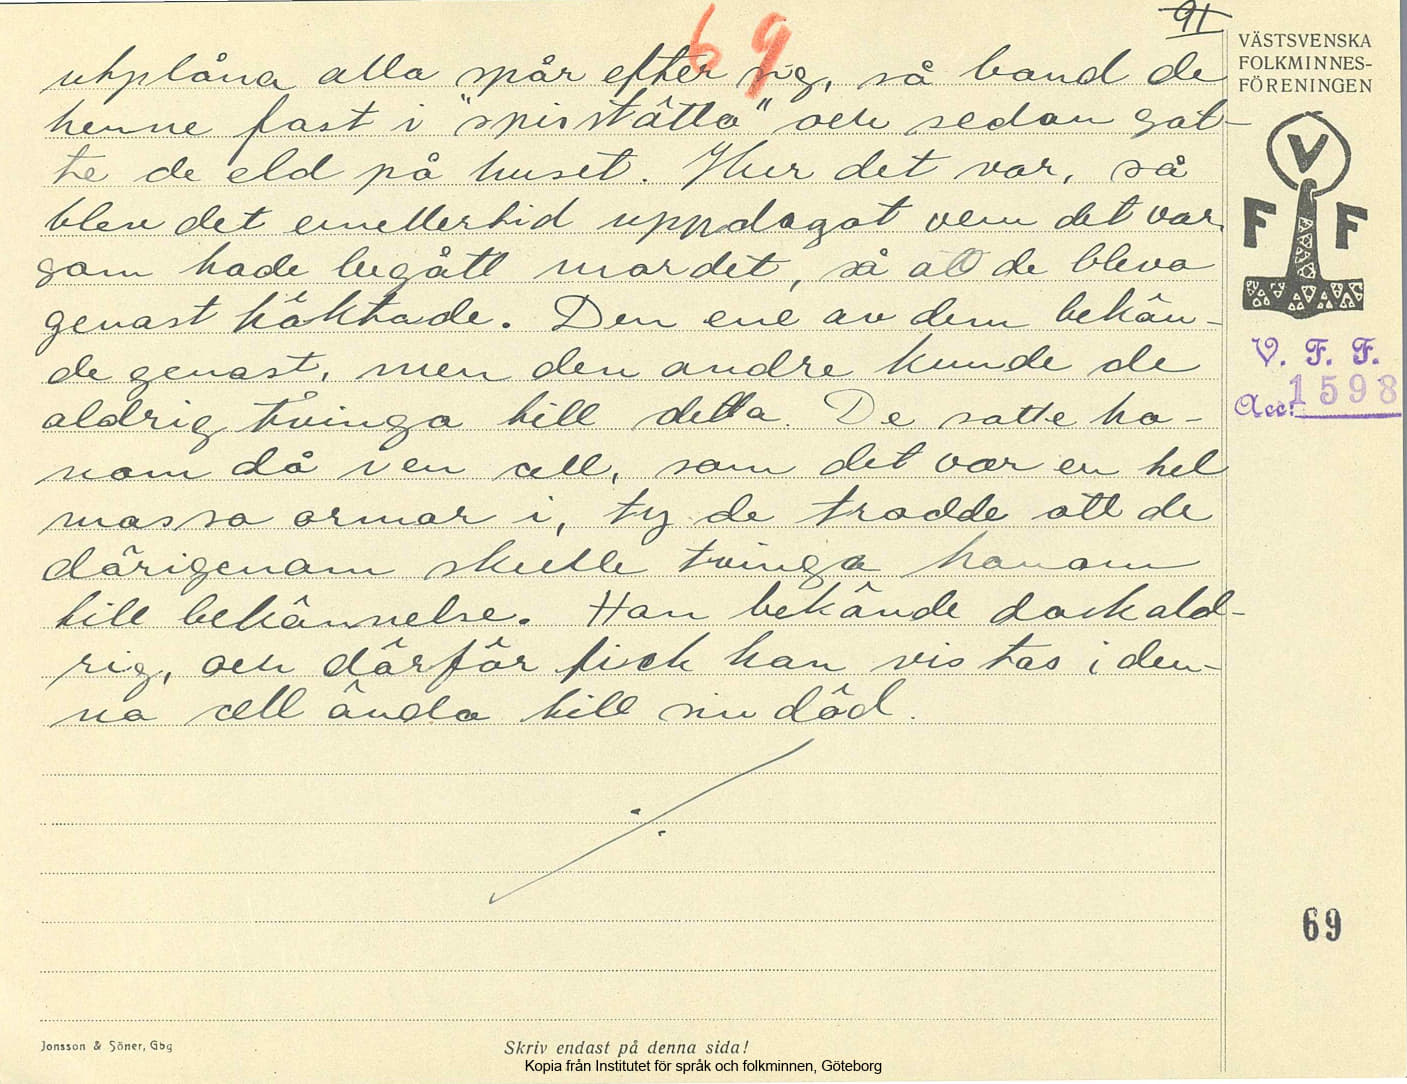 91
69
utplåna alla spår efter sig, så band de
henne fast i "spisstätta" och sedan sat-
te de eld på huset. Hur det var, så
blev det emellertid uppdagat vem det var
som hade begått mordet, så att de bleva
genast häktade. Den ene av dem bekän-
de genast, men den andre kunde de
aldrig tvinga till detta. De satte ho-
nom då i en cell, som det var en hel
massa ormar i, ty de trodde att de
därigenom skulle tvinga honom
till bekännelse. Han bekände dock ald-
rig, och därför fick han vistas i den-
na cell ända till sin död.
VÄSTSVENSKA
FOLKMINNES-
FÖRENINGEN
V
F F
V. F. F.
Acc. 1598
69
Jonsson & Söner, Gbg
Skriv endast på denna sida!
Kopia från Institutet för språk och folkminnen, Göteborg